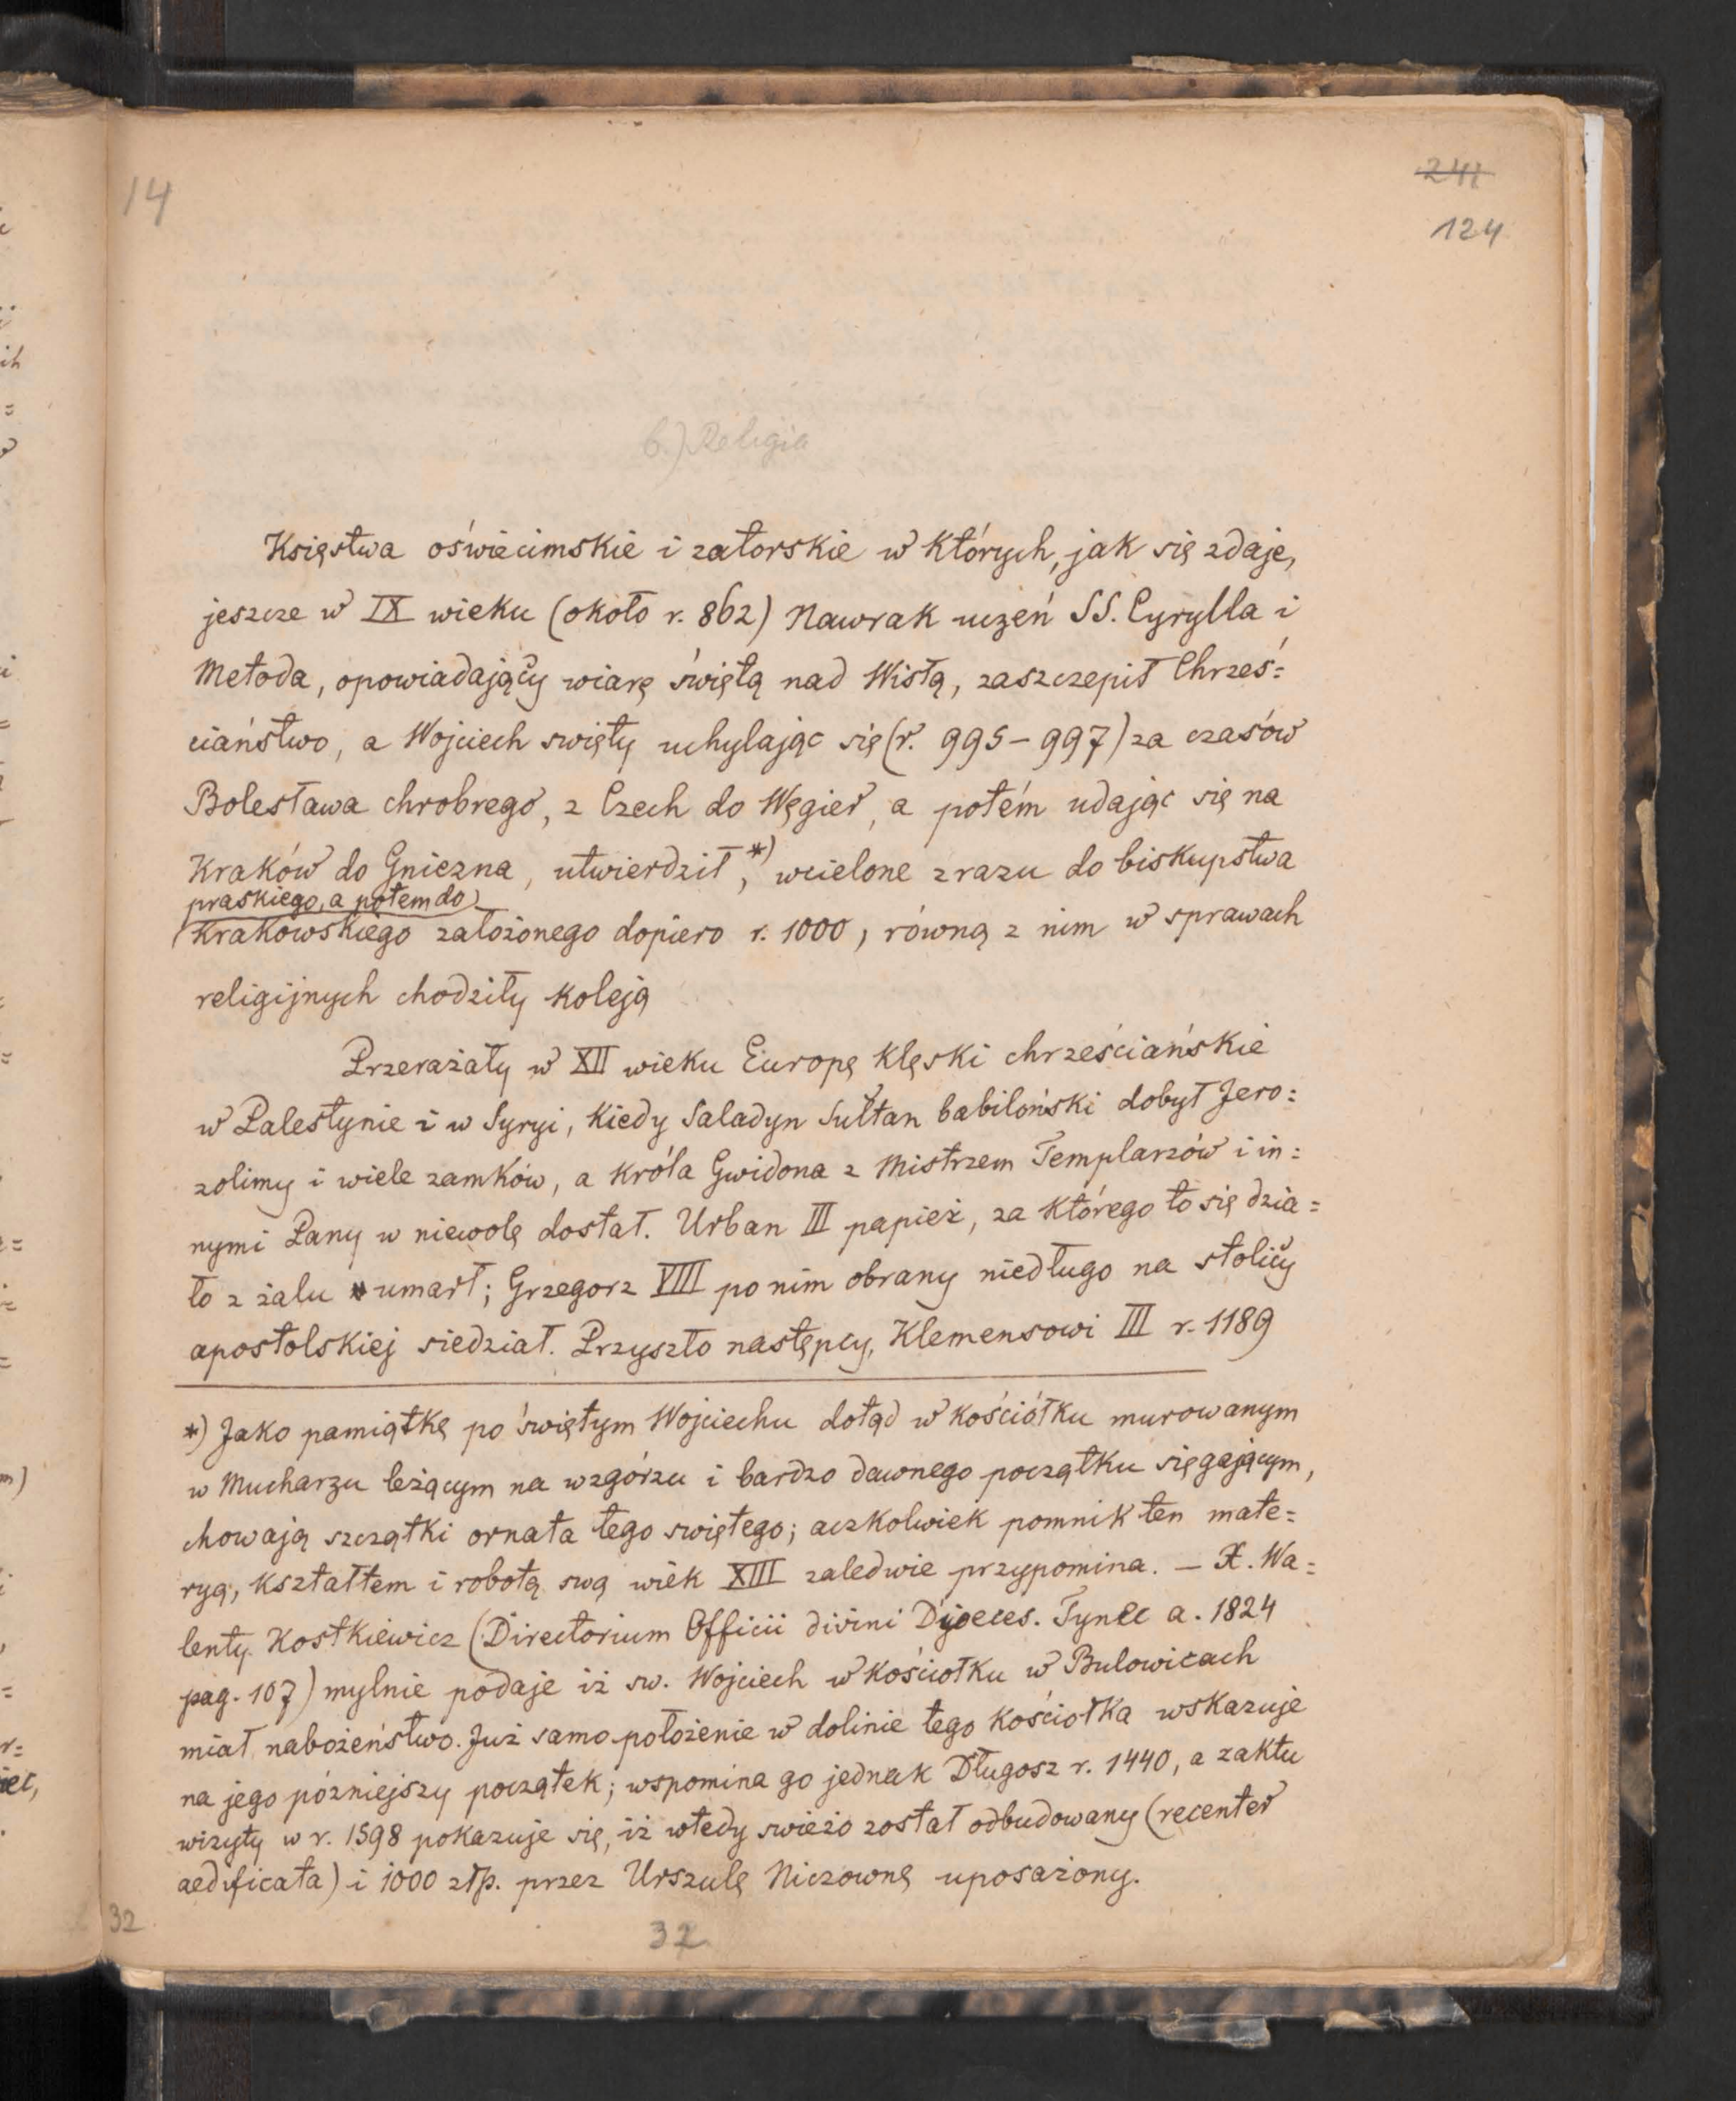 14
241
124
b.) Religia
Księstwa oświecimskie i zatorskie w których, jak się zdaje,
jeszcze w IX wieku (około r. 862) Nawrak uczeń SS. Cyrylla i
Metoda, opowiadający wiarę świętą nad Wisłą, zaszczepił Chrześ=
ciaństwo, a Wojciech swięty uchylając się (r. 995–997) za czasów
Bolesława chrobrego, z Czech do Węgier, a potém udając się na
Kraków do Gniezna, utwierdził,*) wcielone zrazu do biskupstwa
praskiego, a potem do
Krakowskiego założonego dopiero r. 1000, równą z nim w sprawach
religijnych chodziły koleją
Przerażały w XII wieku Europę klęski chrześciańskie
w Palestynie i w Syryi, kiedy Saladyn Sułtan babiloński dobył Jero=
zolimy i wiele zamków, a króla Gwidona z Mistrzem Templarzów i in=
nymi Pany w niewolę dostał. Urban III papież, za którego to się dzia=
ło z żalu umarł; Grzegorz VIII po nim obrany niedługo na stolicy
apostolskiej siedział. Przyszło następcy, Klemensowi III r. 1189
*) Jako pamiątkę po świętym Wojciechu dotąd w kościółku murowanym
w Mucharzu leżącym na wzgórzu i bardzo dawnego początku sięgającym,
chowają szczątki ornata tego swiętego; aczkolwiek pomnik ten mate=
ryą, kształtem i robotą swą wiek XIII zaledwie przypomina. – X. Wa=
lenty Kostkiewicz (Directorium Officii divini Dyoeces. Tynec a. 1824
pag. 107) mylnie podaje iż sw. Wojciech w kościołku w Bulowicach
miał nabożeństwo. Już samo położenie w dolinie tego kościołka wskazuje
na jego pózniejszy początek; wspomina go jednak Długosz r. 1440, a zaktu
wizyty w r. 1598 pokazuje się, iż wtedy swieżo został odbudowany (recenter
aedificata) i 1000 złp. przez Urszulę Niczownę uposażony.
32
32